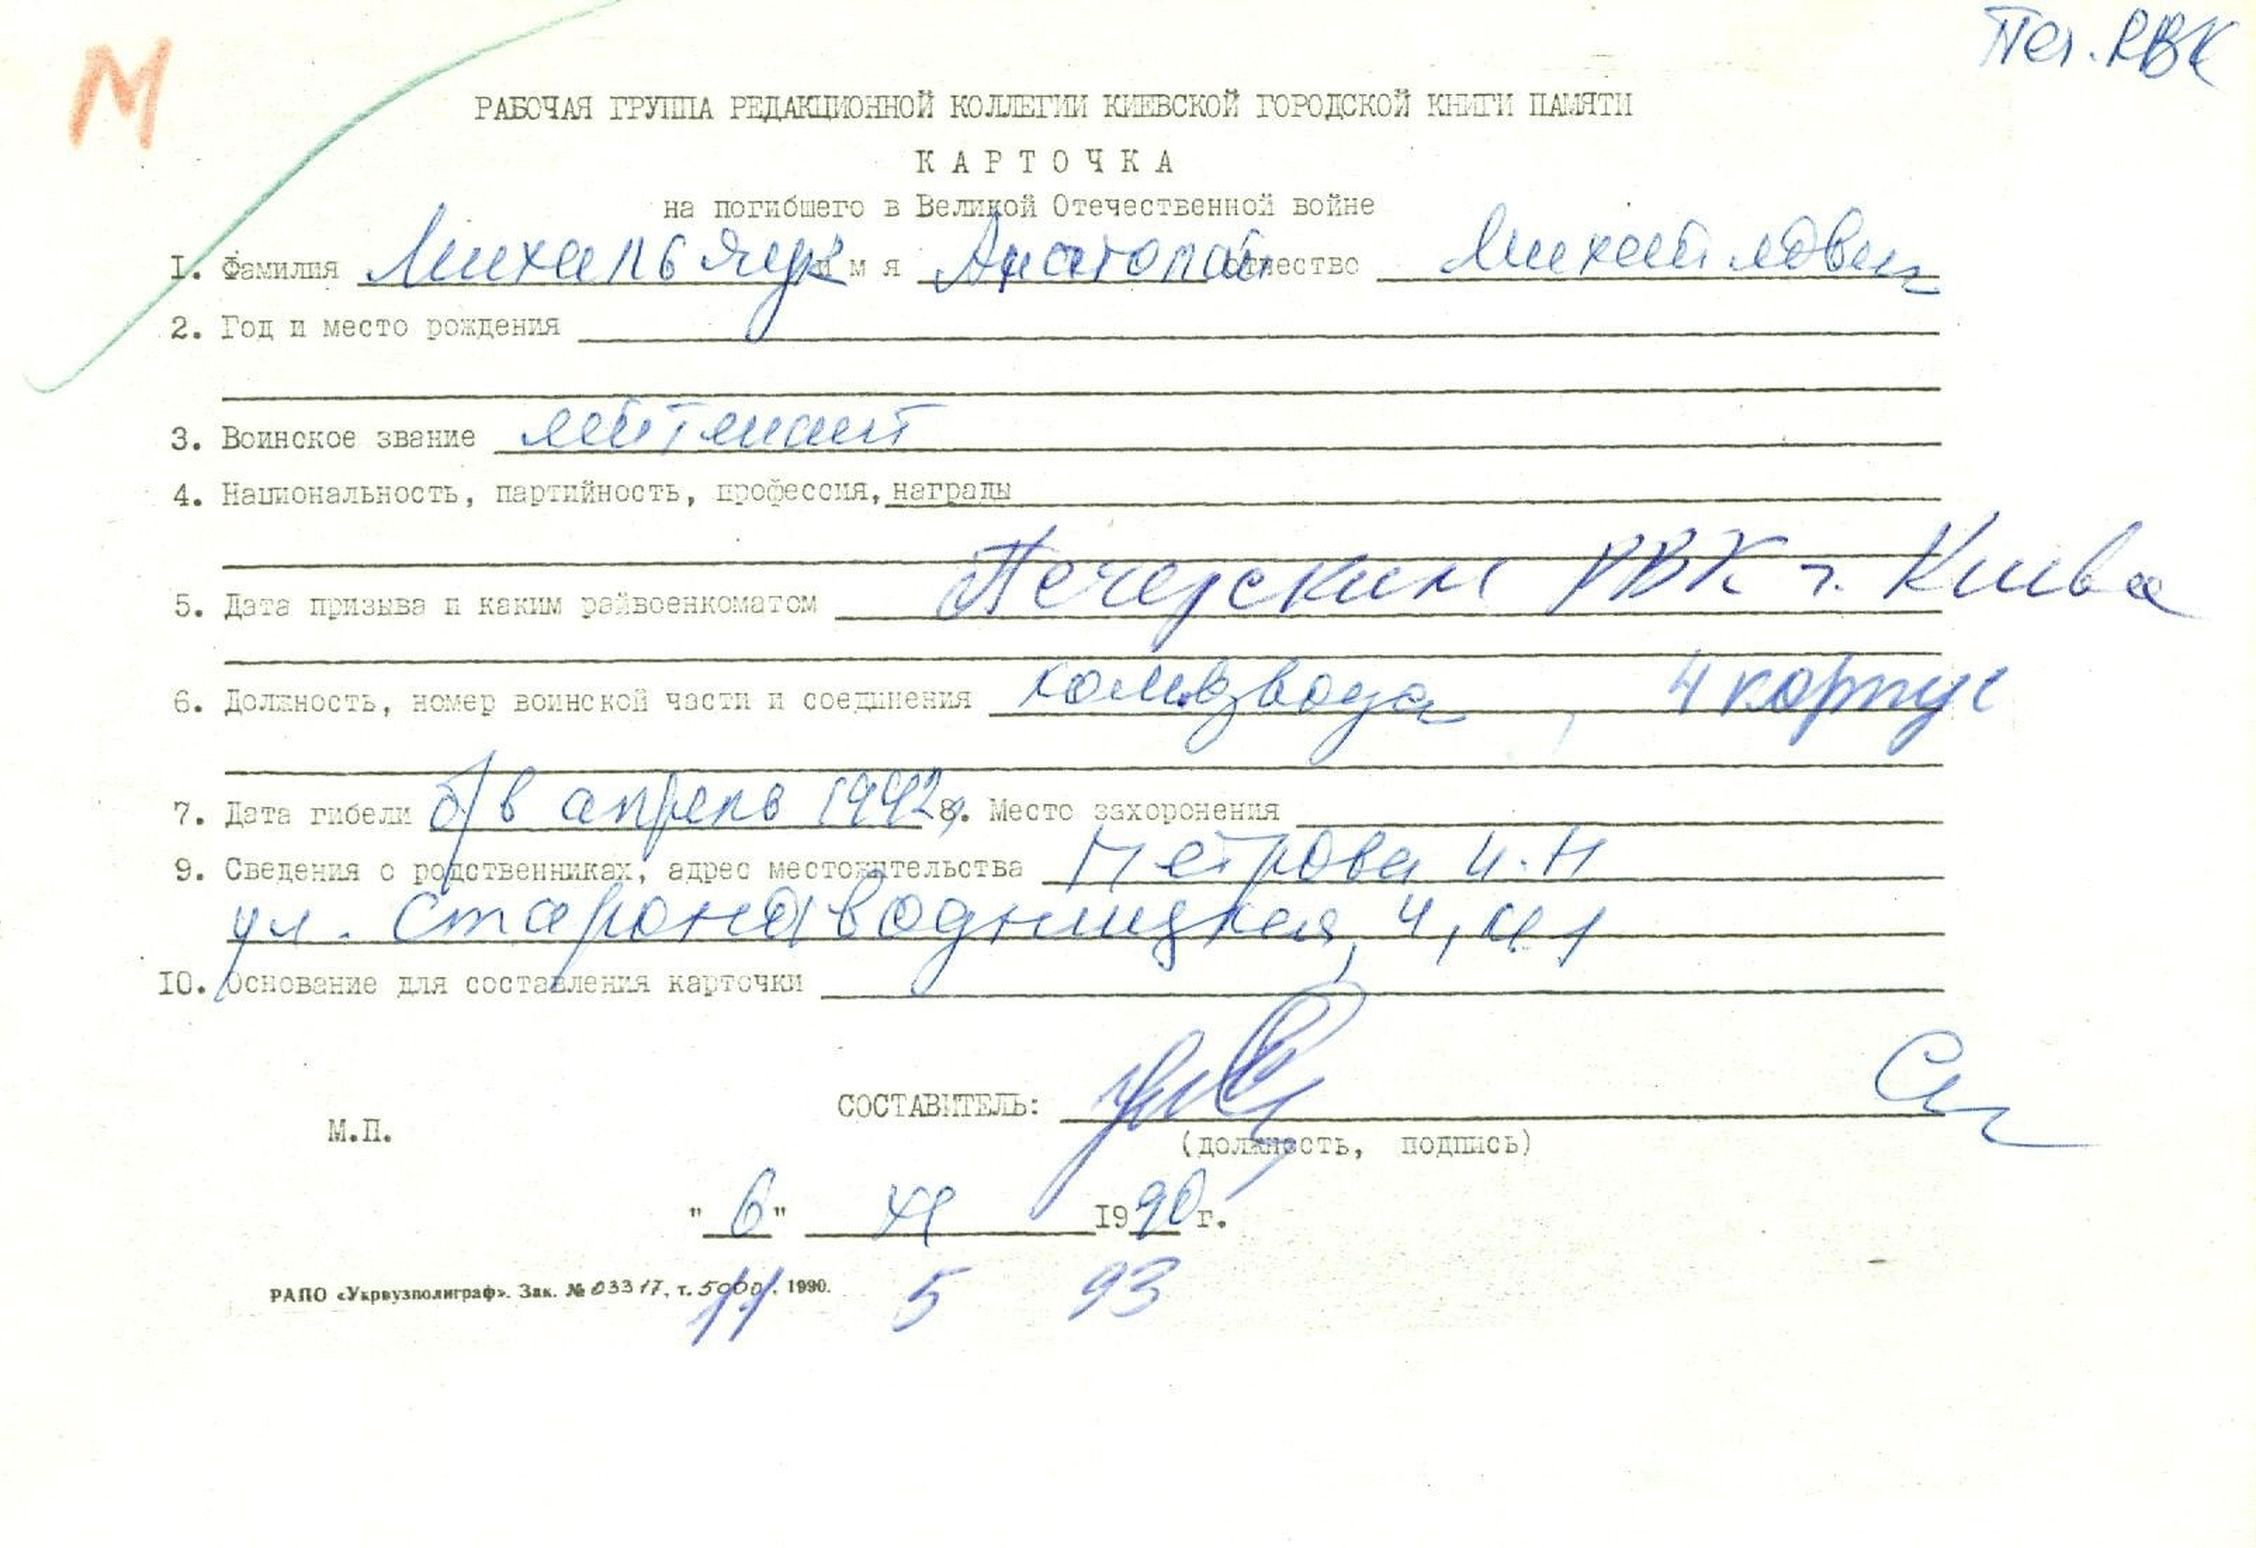 М
Печ. РВК
РАБОЧАЯ ГРУППА РЕДАКЦИОННОЙ КОЛЛЕГИИ КИЕВСКОЙ ГОРОДСКОЙ КНИГИ ПАМЯТИ
КАРТОЧКА
на погибшего в Великой Отечественной войне
I. Фамилия Михальячук имя Анатолий отчество Михайлович
2. Год и место рождения
3. Воинское звание лейтенант
4. Национальность, партийность, профессия, награды
5. Дата призыва и каким райвоенкоматом Печерским РВК г. Киева
6. Должность, номер воинской части и соединения комвзвода, 4 корпус
7. Дата гибели б/в апрель 1942 8. Место захоронения
9. Сведения о родственниках, адрес местожительства Петрова И.Н
ул. Старонаводницкая, 4,
10. Основание для составления карточки
СОСТАВИТЕЛЬ:
М.П.
(должность, подпись)
"6" XI 1990 г.
РАПО «Укрвузполиграф». Зак. № 03317, т. 5000. 1990.
11 5 93